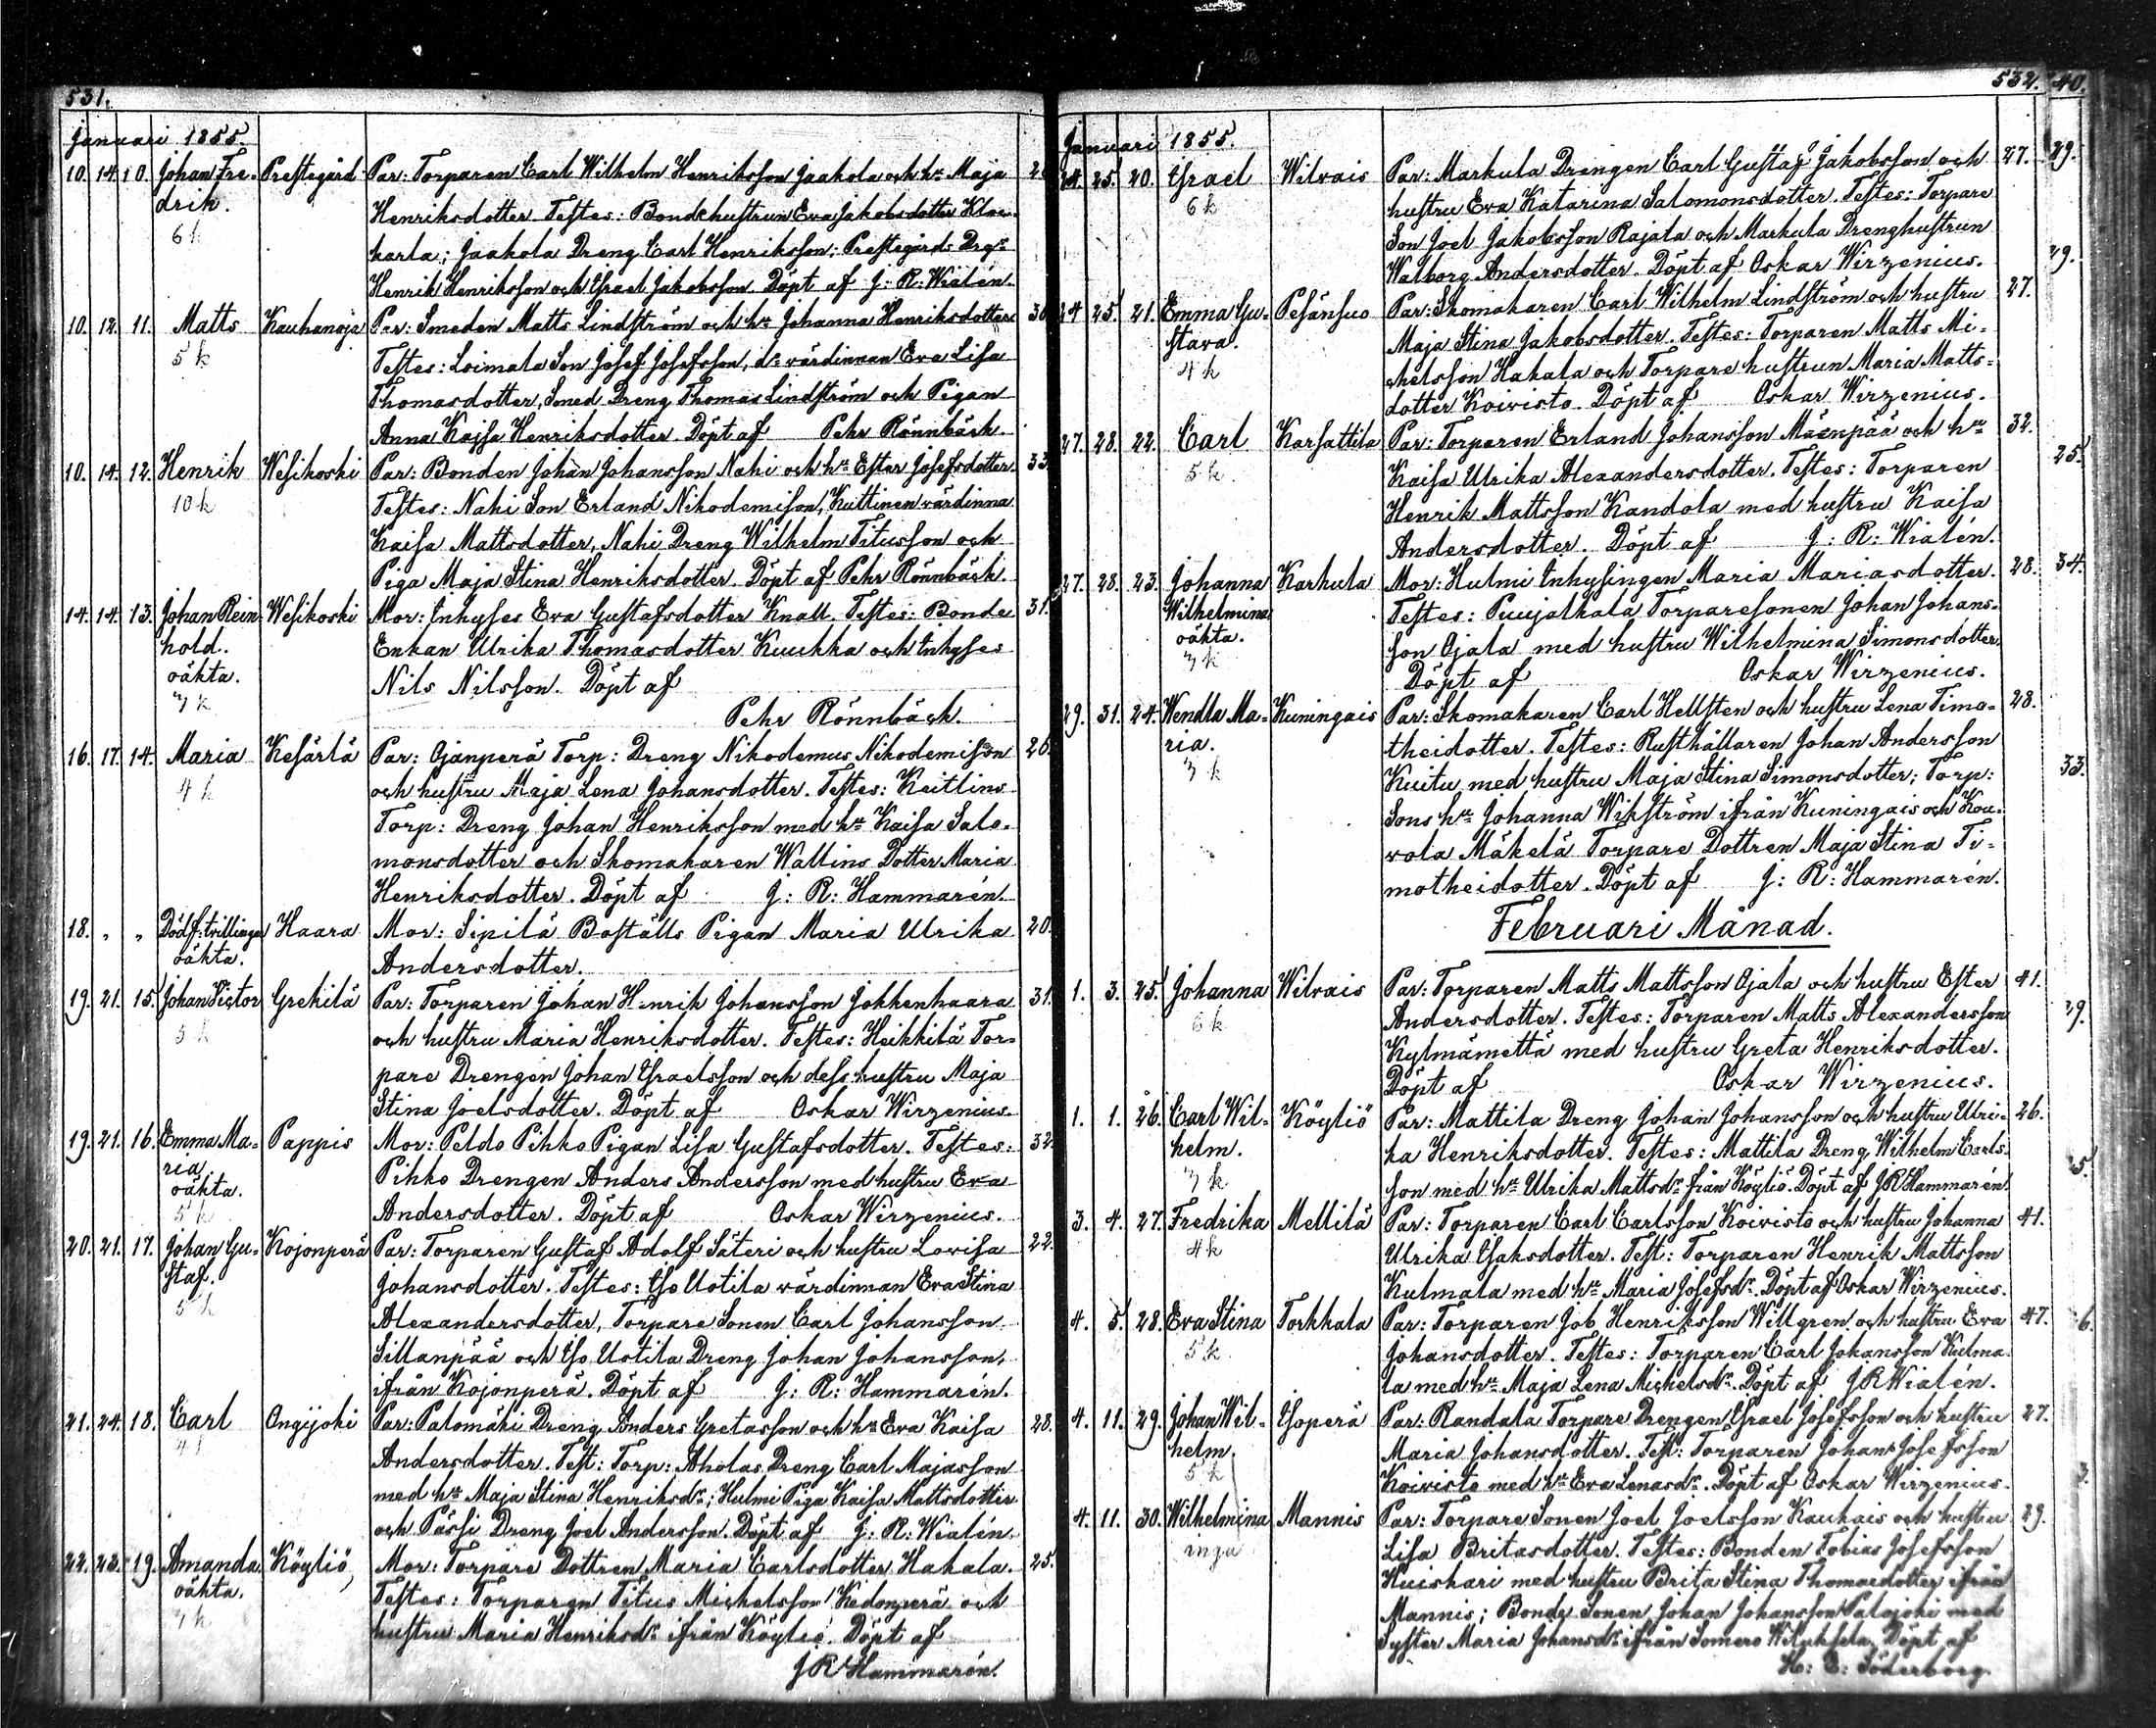 531.
Januari 1855.
10. 14. 10. Johan Fre- Prestegård Par: Torparen Carl Wilhelm Henriksson Jaakola och hu Maja
drik. Henriksdotter. Testes: Bondehustrun Eva Jakobsdotter
6 k karla; Jaakola Dreng Carl Henriksson; Prestegårds Drgr
Henrik Henriksson och Israel Jakobsson. Döpt af J: R: Wialén.
10. 12. 11. Matts Kauhanoja Par: Smeden Matts Lindström och hu Johanna Henriksdotter 30
5 k Testes: Loimala Son Josef Josefsson, do värdinnan Eva Lisa
Thomasdotter, Smed Dreng Thomas Lindström och Pigan
Anna Kajsa Henriksdotter. Döpt af Pehr Rönnbäck.
10. 14. 12. Henrik Wesikoski Par: Bonden Johan Johansson Nahi och hu Ester Josefsdotter. 33
10 k Testes: Nahi Son Erland Nikodemisson, Kuttinen värdinna
Kaisa Mattsdotter, Nahi Dreng Wilhelm Titusson och
Piga Maja Stina Henriksdotter. Döpt af Pehr Rönnbäck.
14. 14. 13. Johan Rein Wesikoski Mor: Inhyses Eva Gustafsdotter Knall. Testes: Bonde 31.
hold. Enkan Ulrika Thomasdotter Kuukka och Inhyses
oäkta. Nils Nilsson. Döpt af
7 k Pehr Rönnbäck.
16. 17. 14. Maria Kesärlä Par: Ojanperä Torp: Dreng Nikodemus Nikodemisson 26
4 k och hustru Maja Lena Johansdotter. Testes: Keitlins
Torp: Dreng Johan Henriksson med hu Kaisa Salo-
monsdotter och Skomakaren Wallins Dotter Maria
Henriksdotter. Döpt af J: R: Hammarén.
18. " " Dödf: trillingar Haara Mor: Sipilä Boställs Pigan Maria Ulrika 20.
oäkta. Andersdotter.
19. 21. 15. Johan Victor Grekilä Par: Torparen Johan Henrik Johansson Jokkenhaara 31.
5 k och hustru Maria Henriksdotter. Testes: Heikkilä Tor-
pare Drengen Johan Israelsson och dess hustru Maja
Stina Joelsdotter. Döpt af Oskar Wirzenius.
19. 21. 16. Emma Ma- Pappis Mor: Peldo Pihko Pigan Lisa Gustafsdotter. Testes: 32.
ria. Pihko Drengen Anders Andersson med hustru Eva
oäkta. Andersdotter. Döpt af Oskar Wirzenius.
5 k
20. 21. 17. Johan Gu- Kojonperä Par: Torparen Gustaf Adolf Säteri och hustru Lovisa 22.
staf. Johansdotter. Testes: Iso Uotila värdinnan Eva Stina
5 k Alexandersdotter, Torpare Sonen Carl Johansson
Sillanpää och Iso Uotila Dreng Johan Johansson,
ifrån Kojonperä. Döpt af J: R: Hammarén.
21. 24. 18. Carl Ongijoki Par: Palomäki Dreng Anders Gretasson och hu Eva Kaisa 28.
4 k Andersdotter. Test: Torp: Aholas Dreng Carl Majasson
med hu Maja Stina Henriksdr; Hulmi Piga Kaisa Mattsdotter
och Passi Dreng Joel Andersson. Döpt af J: R: Wialén.
22. 23. 19. Amanda Köyliö, Mor: Torpare Dottren Maria Carlsdotter Hakala. 25.
oäkta. Testes: Torparen Titus Michelsson Kedonperä och
7 k hustru Maria Henriksdr ifrån Köyliö. Döpt af
J R Hammarén.
532. 40.
Januari 1855.
24. 25. 20. Israel Wilvais Par: Markula Drengen Carl Gustaf Jakobsson och 27. 29.
6 k hustru Eva Katarina Salomonsdotter. Testes: Torpare
Son Joel Jakobsson Rajala och Markula Drenghustrun
Walborg Andersdotter. Döpt af Oskar Wirzenius. 29.
24 25. 21. Emma Gu- Pesänsuo Par: Skomakaren Carl Wilhelm Lindström och hustru 27.
stava. Maja Stina Jakobsdotter. Testes: Torparen Matts Mi-
4 k chelsson Hakala och Torpare hustrun Maria Matts-
dotter Koivisto. Döpt af Oskar Wirzenius.
27. 28. 22. Carl Karsattila Par: Torparen Erland Johansson Mäenpää och hu 32.
5 k Kaisa Ulrika Alexandersdotter. Testes: Torparen 25.
Henrik Mattsson Kandola med hustru Kaisa
Andersdotter. Döpt af J: R: Wialén.
27. 28. 23. Johanna Karhula Mor: Hulmi Inhysingen Maria Mariasdotter. 28. 34.
Wilhelmina Testes: Puujalkala Torparesonen Johan Johans-
oäkta. son Ojala med hustru Wilhelmina Simonsdotter.
7 k Döpt af Oskar Wirzenius.
29. 31. 24. Wendla Ma- Kuningais Par: Skomakaren Carl Hellsten och hustru Lena Timo- 28.
ria. theidotter. Testes: Rusthållaren Johan Andersson
7 k Kuitu med hustru Maja Stina Simonsdotter; Torp: 33.
Sons hu Johanna Wikström ifrån Kuningais och Kou-
vola Mäkelä Torpare Dottren Maja Stina Ti-
motheidotter. Döpt af J: R: Hammarén.
Februari Månad.
1. 3. 25. Johanna Wilvais Par: Torparen Matts Mattsson Ojala och hustru Ester 41.
6 k Andersdotter. Testes: Torparen Matts Alexandersson 29.
Kylmämettä med hustru Greta Henriksdotter.
Döpt af Oskar Wirzenius.
1. 1. 26. Carl Wil- Köyliö Par: Mattila Dreng Johan Johansson och hustru Ulri- 26.
helm. ka Henriksdotter. Testes: Mattila Dreng Wilhelm Carls-
7 k son med hu Ulrika Mattsdr från Köyliö. Döpt af J R Hammarén.
3. 4. 27. Fredrika Mellilä Par: Torparen Carl Carlsson Koivisto och hustru Johanna 41.
4 k Ulrika Isaksdotter. Test: Torparen Henrik Mattsson
Kulmala med hu Maria Josefsdr. Döpt af Oskar Wirzenius.
4. 5. 28. Eva Stina Torkkala Par: Torparen Job Henriksson Willgren och hustru Eva 47. 6.
5 k Johansdotter. Testes: Torparen Carl Johansson Kulma-
la med hu Maja Lena Michelsdr. Döpt af J R Wialén.
4. 11. 29. Johan Wil- Isoperä Par: Randala Torpare Drengen Israel Josefsson och hustru 27.
helm. Maria Johansdotter. Test: Torparen Johan Josefsson
5 k Koivisto med hu Eva Lenasdr. Döpt af Oskar Wirzenius. 3.
4. 11. 30. Wilhelmina Mannis Par: Torpare Sonen Joel Joelsson Kauhais och hustru 29.
inga Lisa Britasdotter. Testes: Bonden Tobias Josefsson
Huiskari med hustru Brita Stina Thomasdotter ifrån
Mannis; Bonde Sonen Johan Johansson Palojoki med
Syster Maria Johansdr ifrån Somero Wiluksela. Döpt af
H: E: Söderborg.